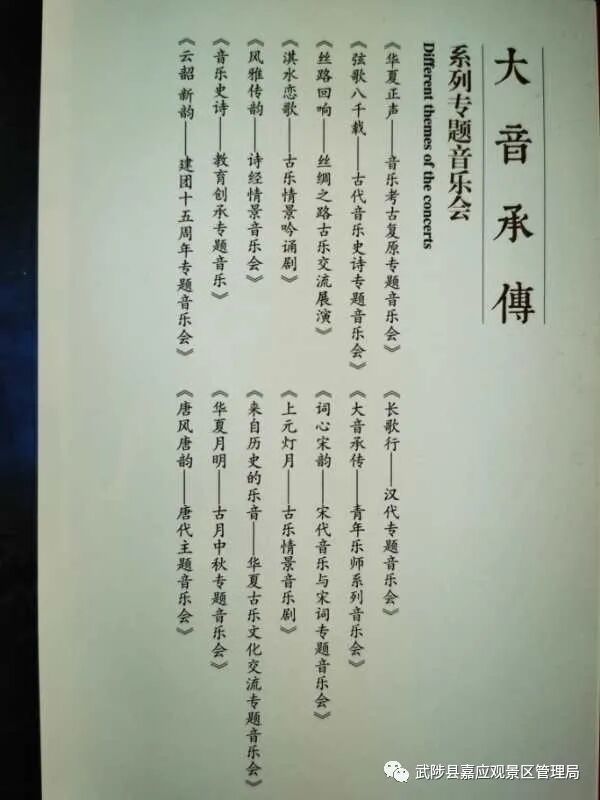 大音承傳
系列专题音乐会
Different themes of the concerts
《华夏正声——音乐考古复原专题音乐会》
《弦歌八千载——古代音乐史诗专题音乐会》
《丝路回响——丝绸之路古乐交流展演》
《淇水恋歌——古乐情景吟诵剧》
《风雅传韵——诗经情景音乐会》
《音乐史诗——教育创承专题音乐》
《云韶 新韵——建团十五周年专题音乐会》
《长歌行——汉代专题音乐会》
《大音承传——青年乐师系列音乐会》
《词心宋韵——宋代音乐与宋词专题音乐会》
《上元灯月——古乐情景音乐剧》
《来自历史的乐音——华夏古乐文化交流专题音乐会》
《华夏月明——古月中秋专题音乐会》
《唐风唐韵——唐代主题音乐会》
武陟县嘉应观景区管理局